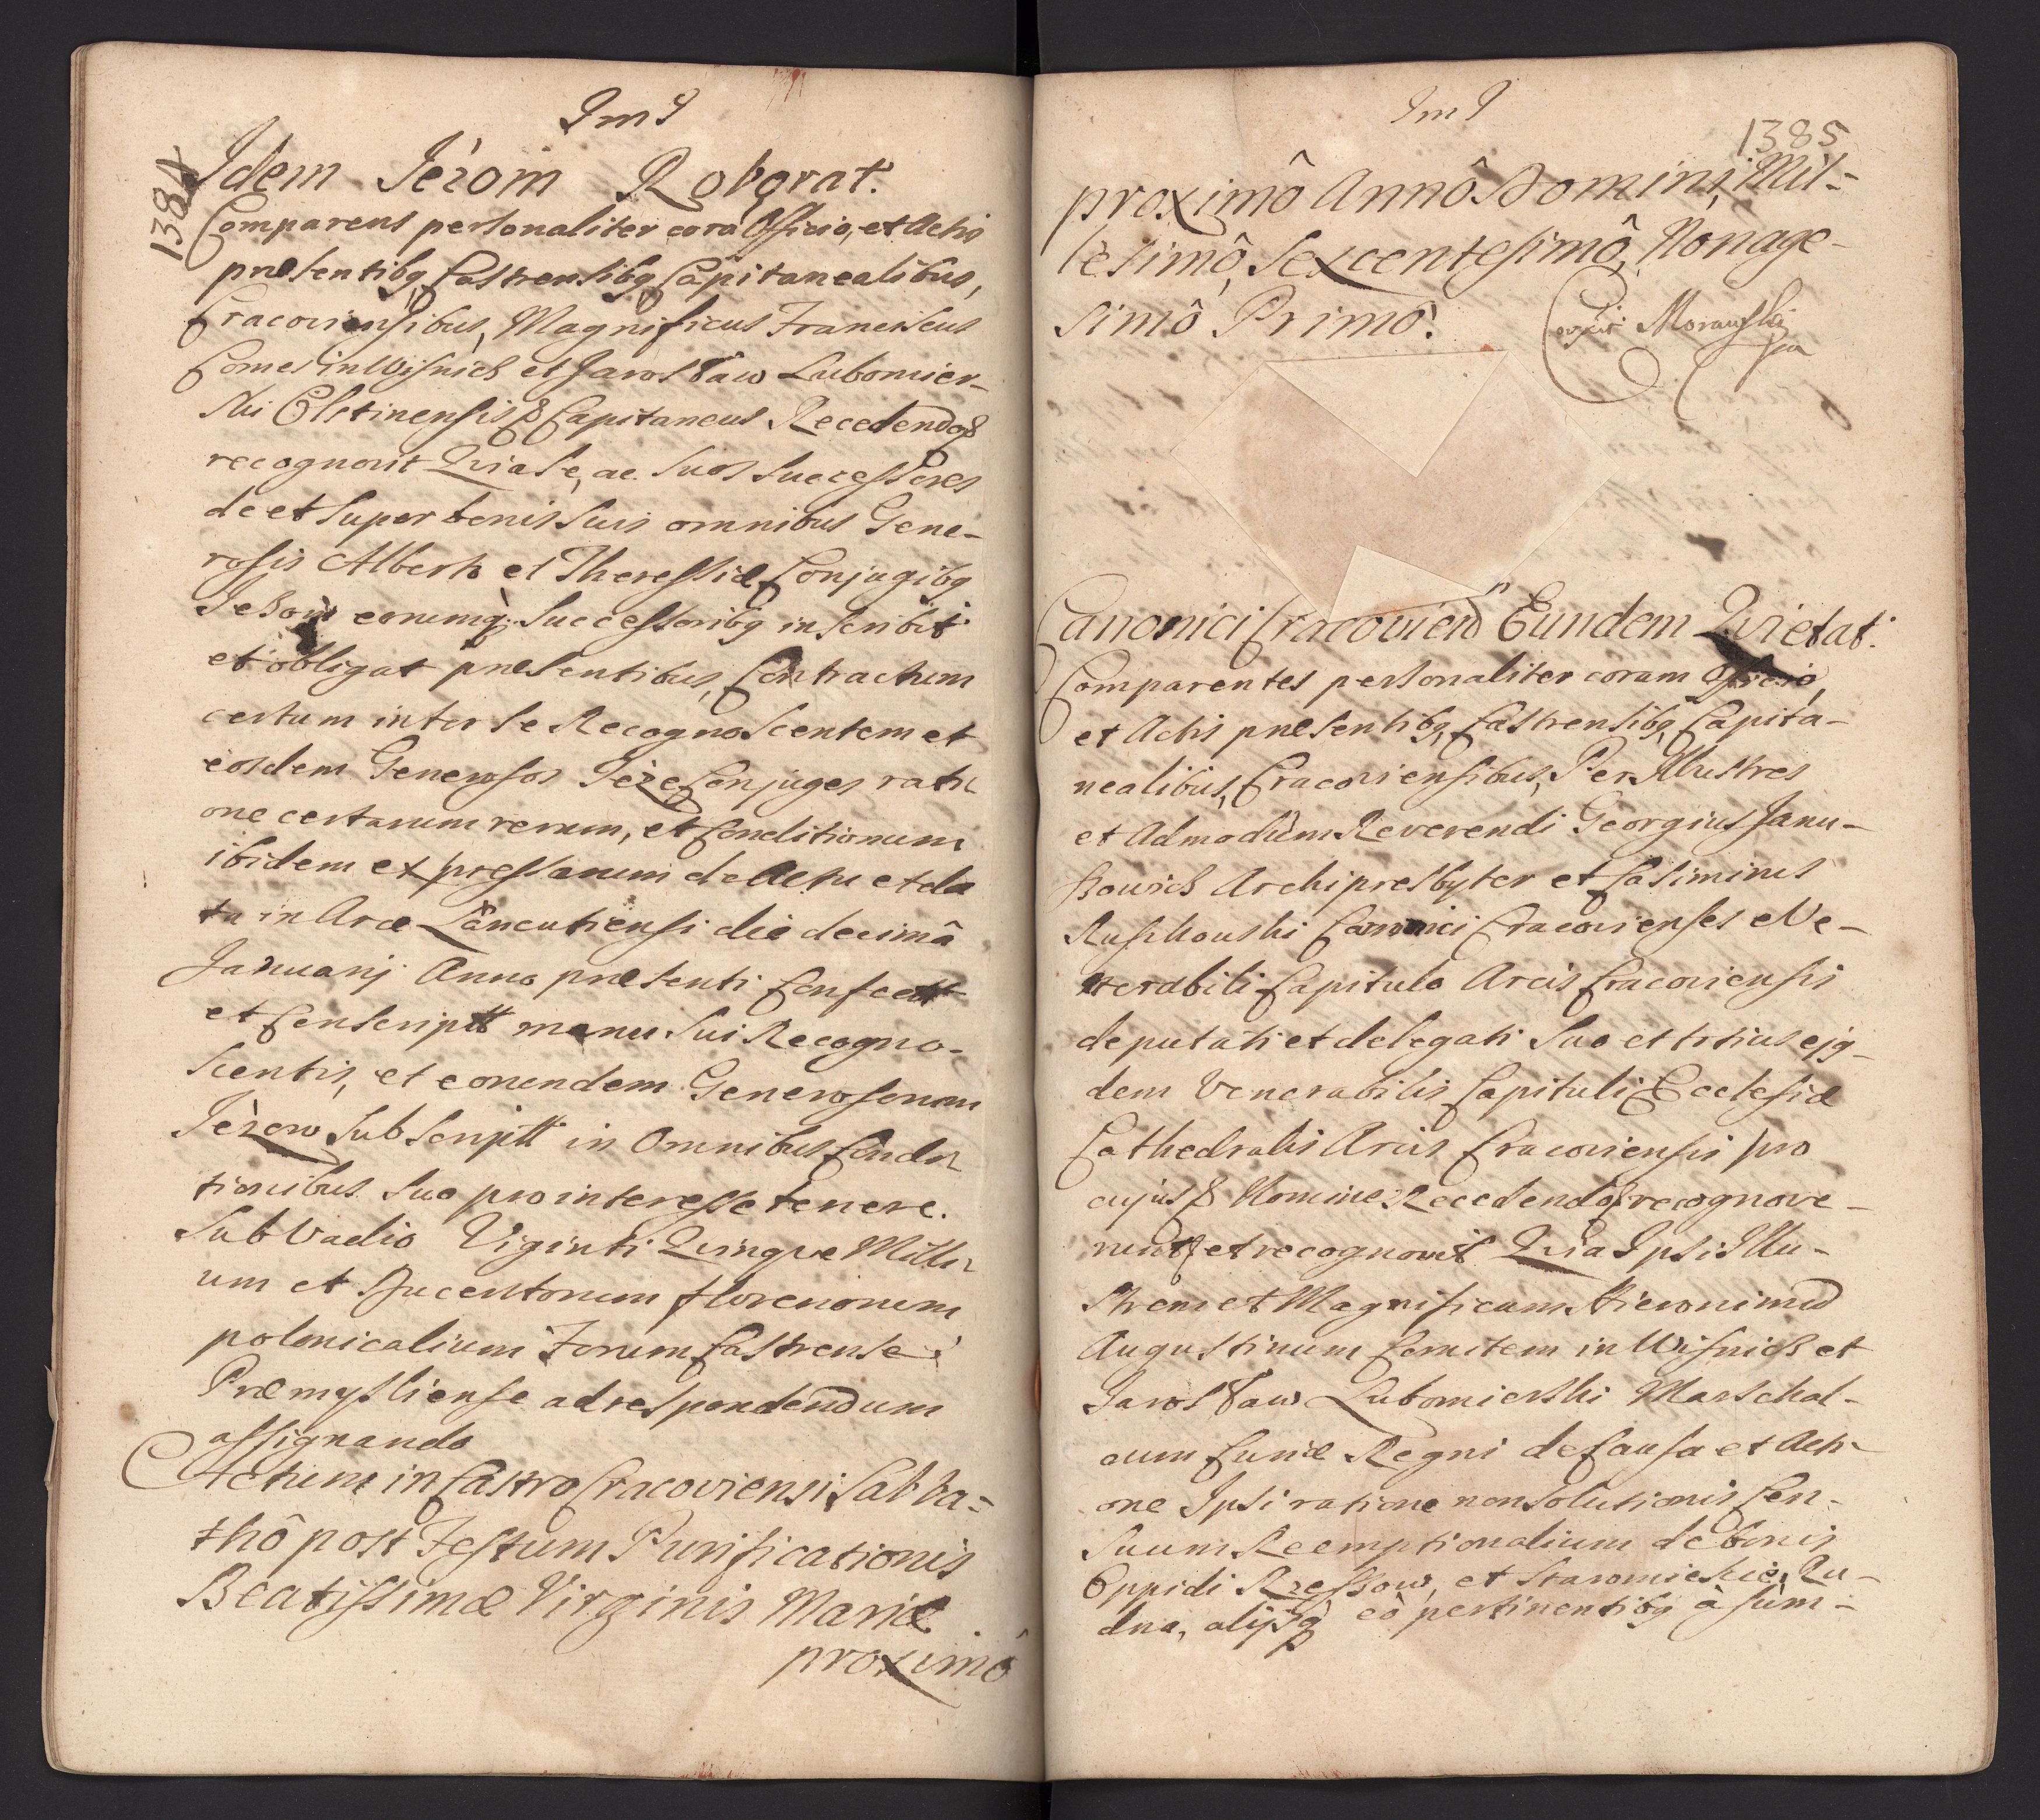 JmJ
1384
Idem Jeżom Roborat.
Comparens personaliter cora Officio, et Actis
pñsentibꝫ Castrensibꝫ Capitanealibus,
Cracoviensibus, Magnificus Franciscus
Comes in Wisnicz et Jarosław Lubomier-
ski Olstinensis & Capitaneus Recedendo &
recognovit Quia Se, ac Suos Successores
de et Super bonis Suis omnibus Gene-
rosis Alberto et Theressiæ Conjugibꝫ
Jeżom eorumq; Successoribꝫ inscribit
et obligat præsentibus, Contractum
certum inter Se Recognoscentem et
eosdem Generosos Jeże Conjuges rati-
one certarum rerum, et Conditionum
ibidem expressarum de Actu et da
ta in Arce Lancutiensi die decimâ
Januarij Anno præsenti Confectt
et Conscriptt manu Sui Recogno-
scentis, et eorundem Generosorum
Jeżow Subscriptt in Omnibus Condi-
tionibus Suo pro interesse tenere.
Sub Vadio Viginti Quinque Milli-
um et Ducentorum florenorum
polonicalium Forum Castrense
Præmysliense ad respondendum
assignando
Actum in Castro Cracoviensi Sabba=
thô post Festum Purificationis
Beatissimæ Virginis Mariæ
proximô
JmJ
1385
proximô Annô Domini, Mil=
lesimô, Sexcentesimô, Nonage-
simô Primô.
Morawski
Canonici Cracovien Eundem Quietat.
Comparentes personaliter coram Officio,
et Actis pñsentibꝫ, Castrensibꝫ, Capita-
nealibus, Cracoviensibus, Per Illustres
et Admodùm Reverendi Georgius Janu-
szowicz Archipresbyter et Casimirus
Ruszkowski Canonici Cracovienses e Ve-
nerabili Capitulo Arcis Cracoviensis
deputati et delegati Suo et totius ejꝫ-
dem Venerabilis Capituli Ecclesiæ
Cathedralis Arcis Cracoviensis pro
cujus & Nomine Recedendo & recognove-
runt et recognovit Quia Ipsi Illu-
strem et Magnificum Hieronimum
Augustinum Comitem in Wisnicz et
Jarosław Lubomierski Marschal-
cum Curiæ Regni de Causa et Acti-
one Ipsi ratione non Solutionis Cen-
suum Reemptionalium de bonis
Oppidi Rzessow, et Staromieście, Ru-
dna, alijsq; eò pertinentibꝫ à Sùm-